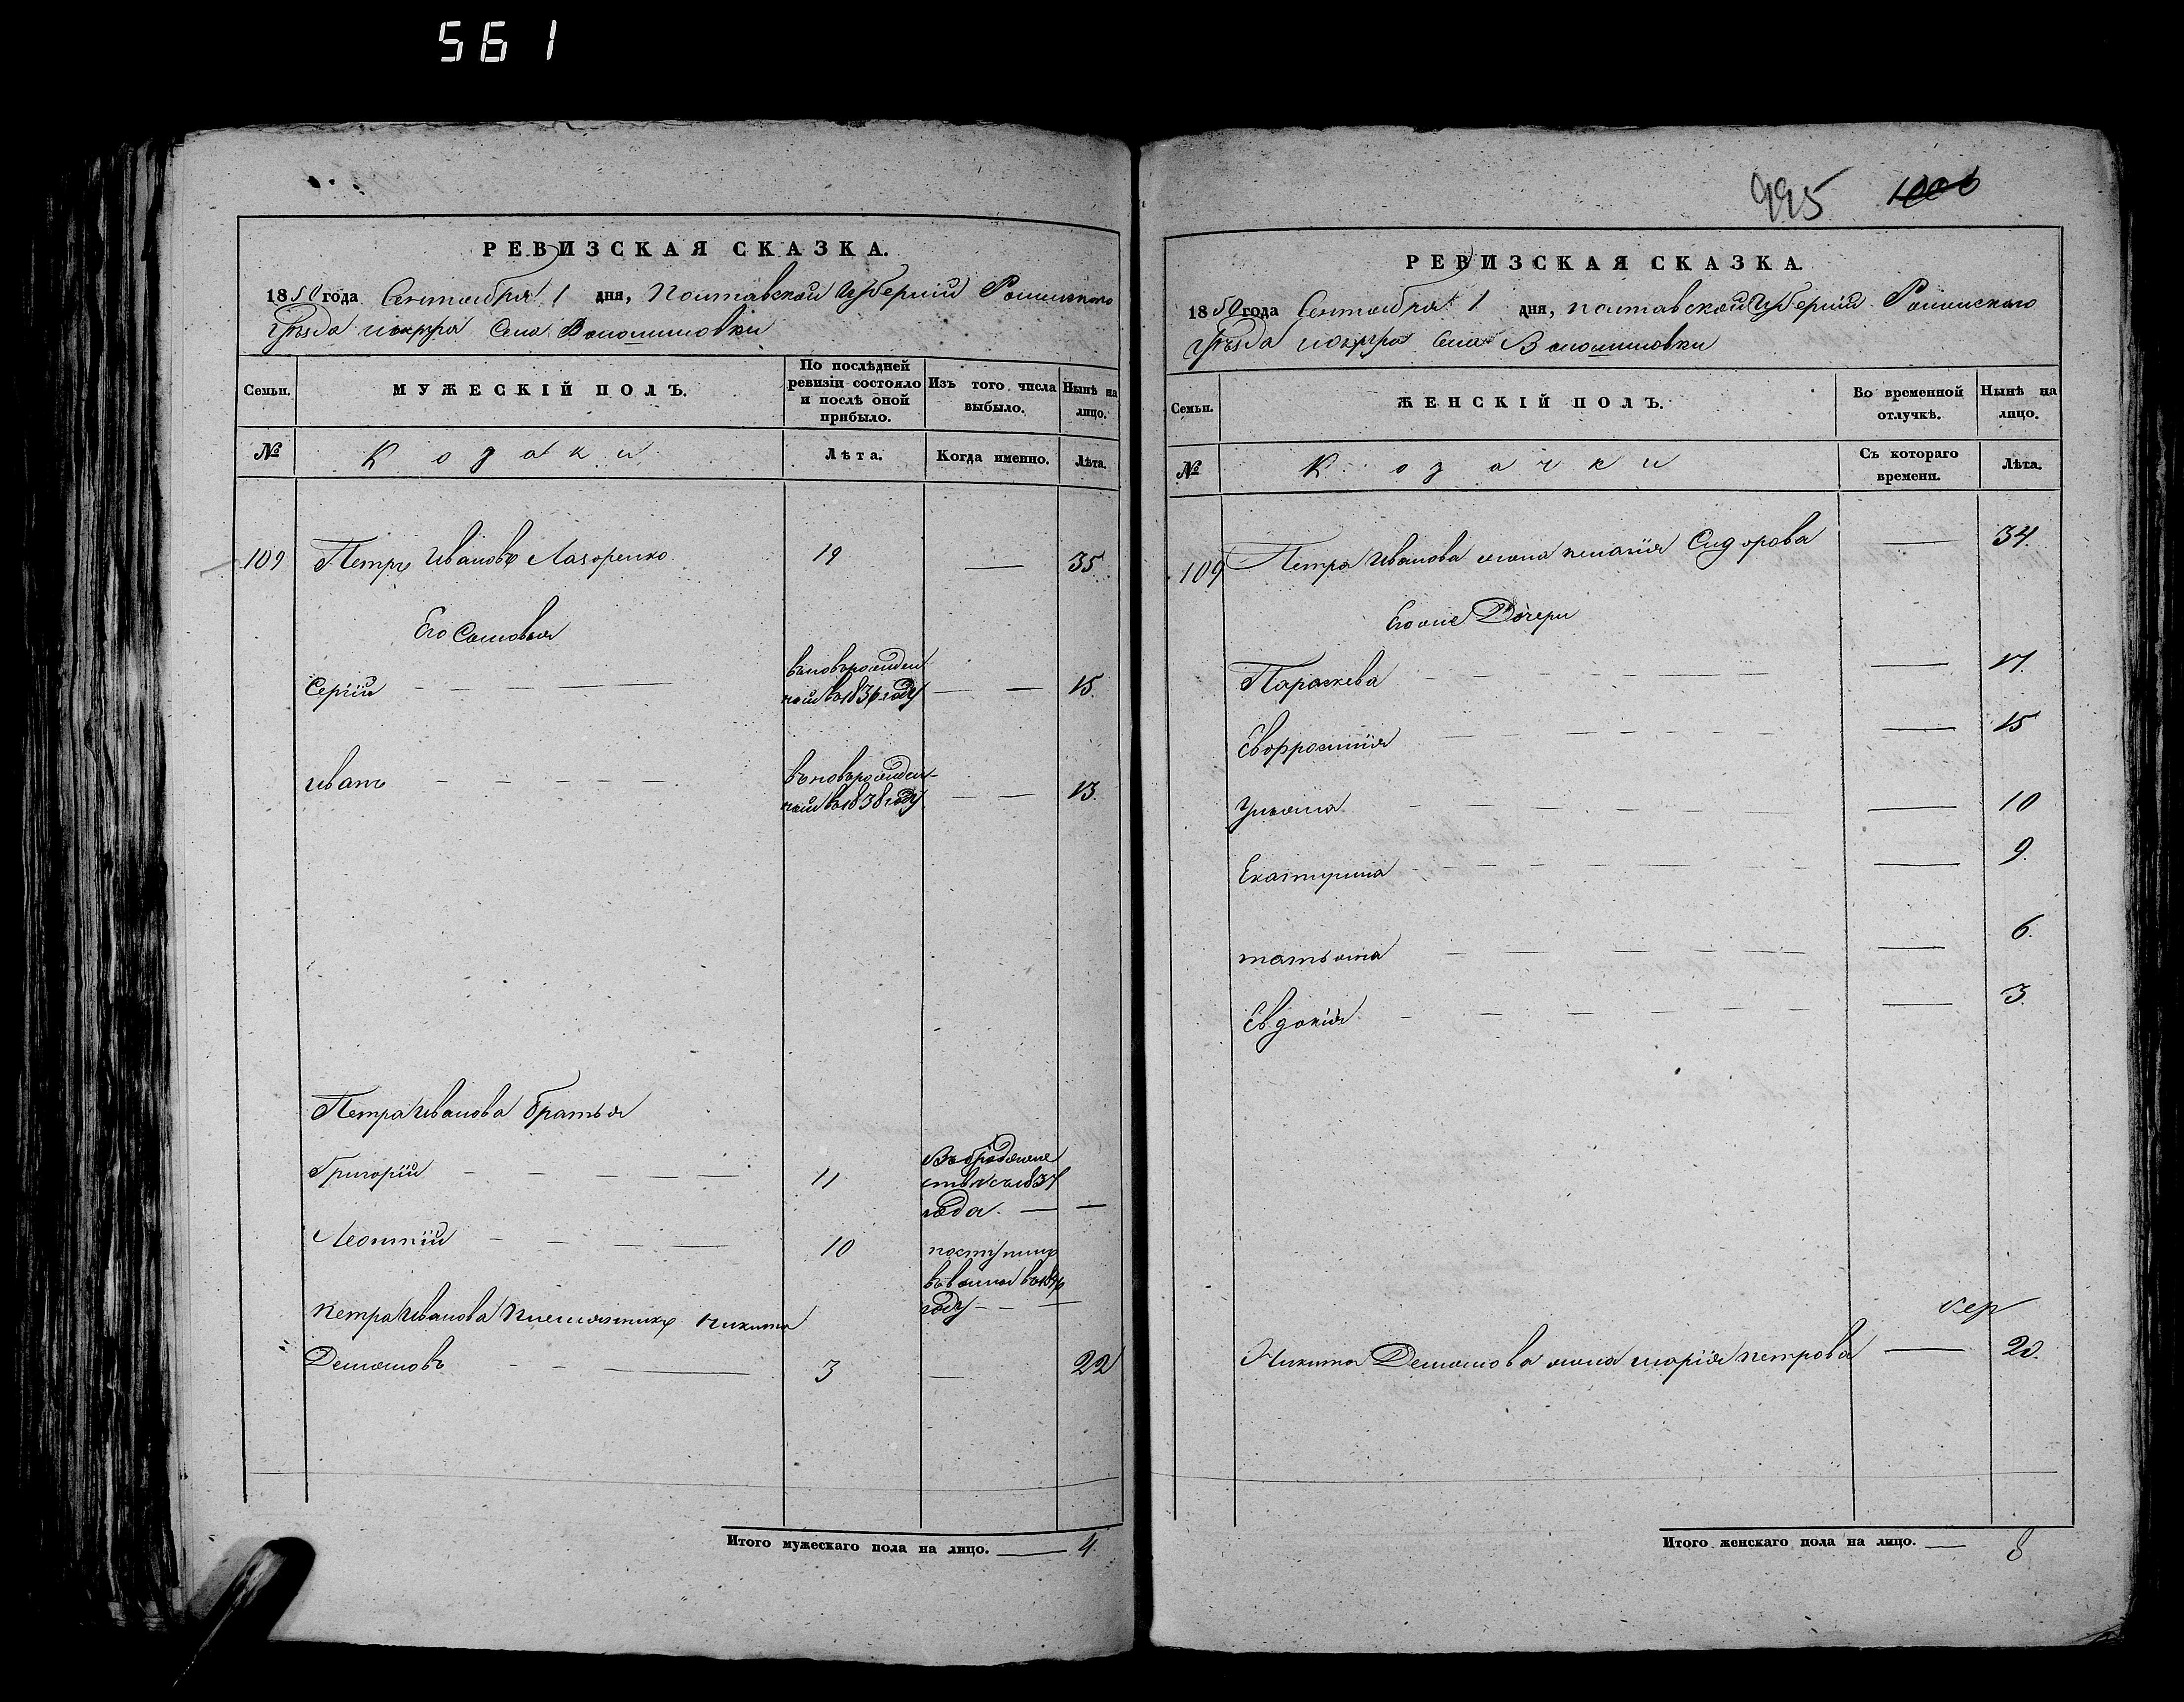 561
РЕВИЗСКАЯ СКАЗКА.
1850 года Сентября 1 дня, Полтавской Губерніи Роменского
Уѣзда Села Волошиновки
Семьи. МУЖЕСКІЙ ПОЛЪ. По послѣдней ревизіи состояло и послѣ оной прибыло. Изъ того числа выбыло. Нынѣ на лицо.
№ Козаки Лѣта. Когда именно. Лѣта.
109 Петръ Ивановъ Лазоренко 19 — 35
Его Сыновья
Сергій — — — вновьрожден
ный въ 1836 году — — 15.
Иванъ — — — — — вновьрожден-
ный въ 1838 году — — 13.
Петра Иванова братья
Григорій — — — — — 11 Въ бродяже
ствѣ съ 1837
года. — —
Леонтій — — — — 10 поступилъ
году — — —
Петра Иванова племянникъ Никита
Демяновъ — — — 3 — 22
Итого мужескаго пола на лицо. — 4.
995 1006
РЕВИЗСКАЯ СКАЗКА.
1850 года Сентября 1 дня, полтавской Губерніи Роменского
Уѣзда Села Волошиновки
Семьи. ЖЕНСКІЙ ПОЛЪ. Во временной отлучкѣ. Нынѣ на лицо.
№ Козачки Съ котораго времени. Лѣта.
109 Петра Иванова жена пелагія Сидорова — 34.
Его же Дочери
Параскева — — — — — — — 17.
Евфросинія — — — — — — — 15
Ульяна — — — — — — 10
Екатерина — — — — — — — 9.
татьяна — — — — — — 6.
Евдокія — — — — — — — 3.
Никита Демянова жена марія петрова — 20.
Итого женскаго пола на лицо. — 8